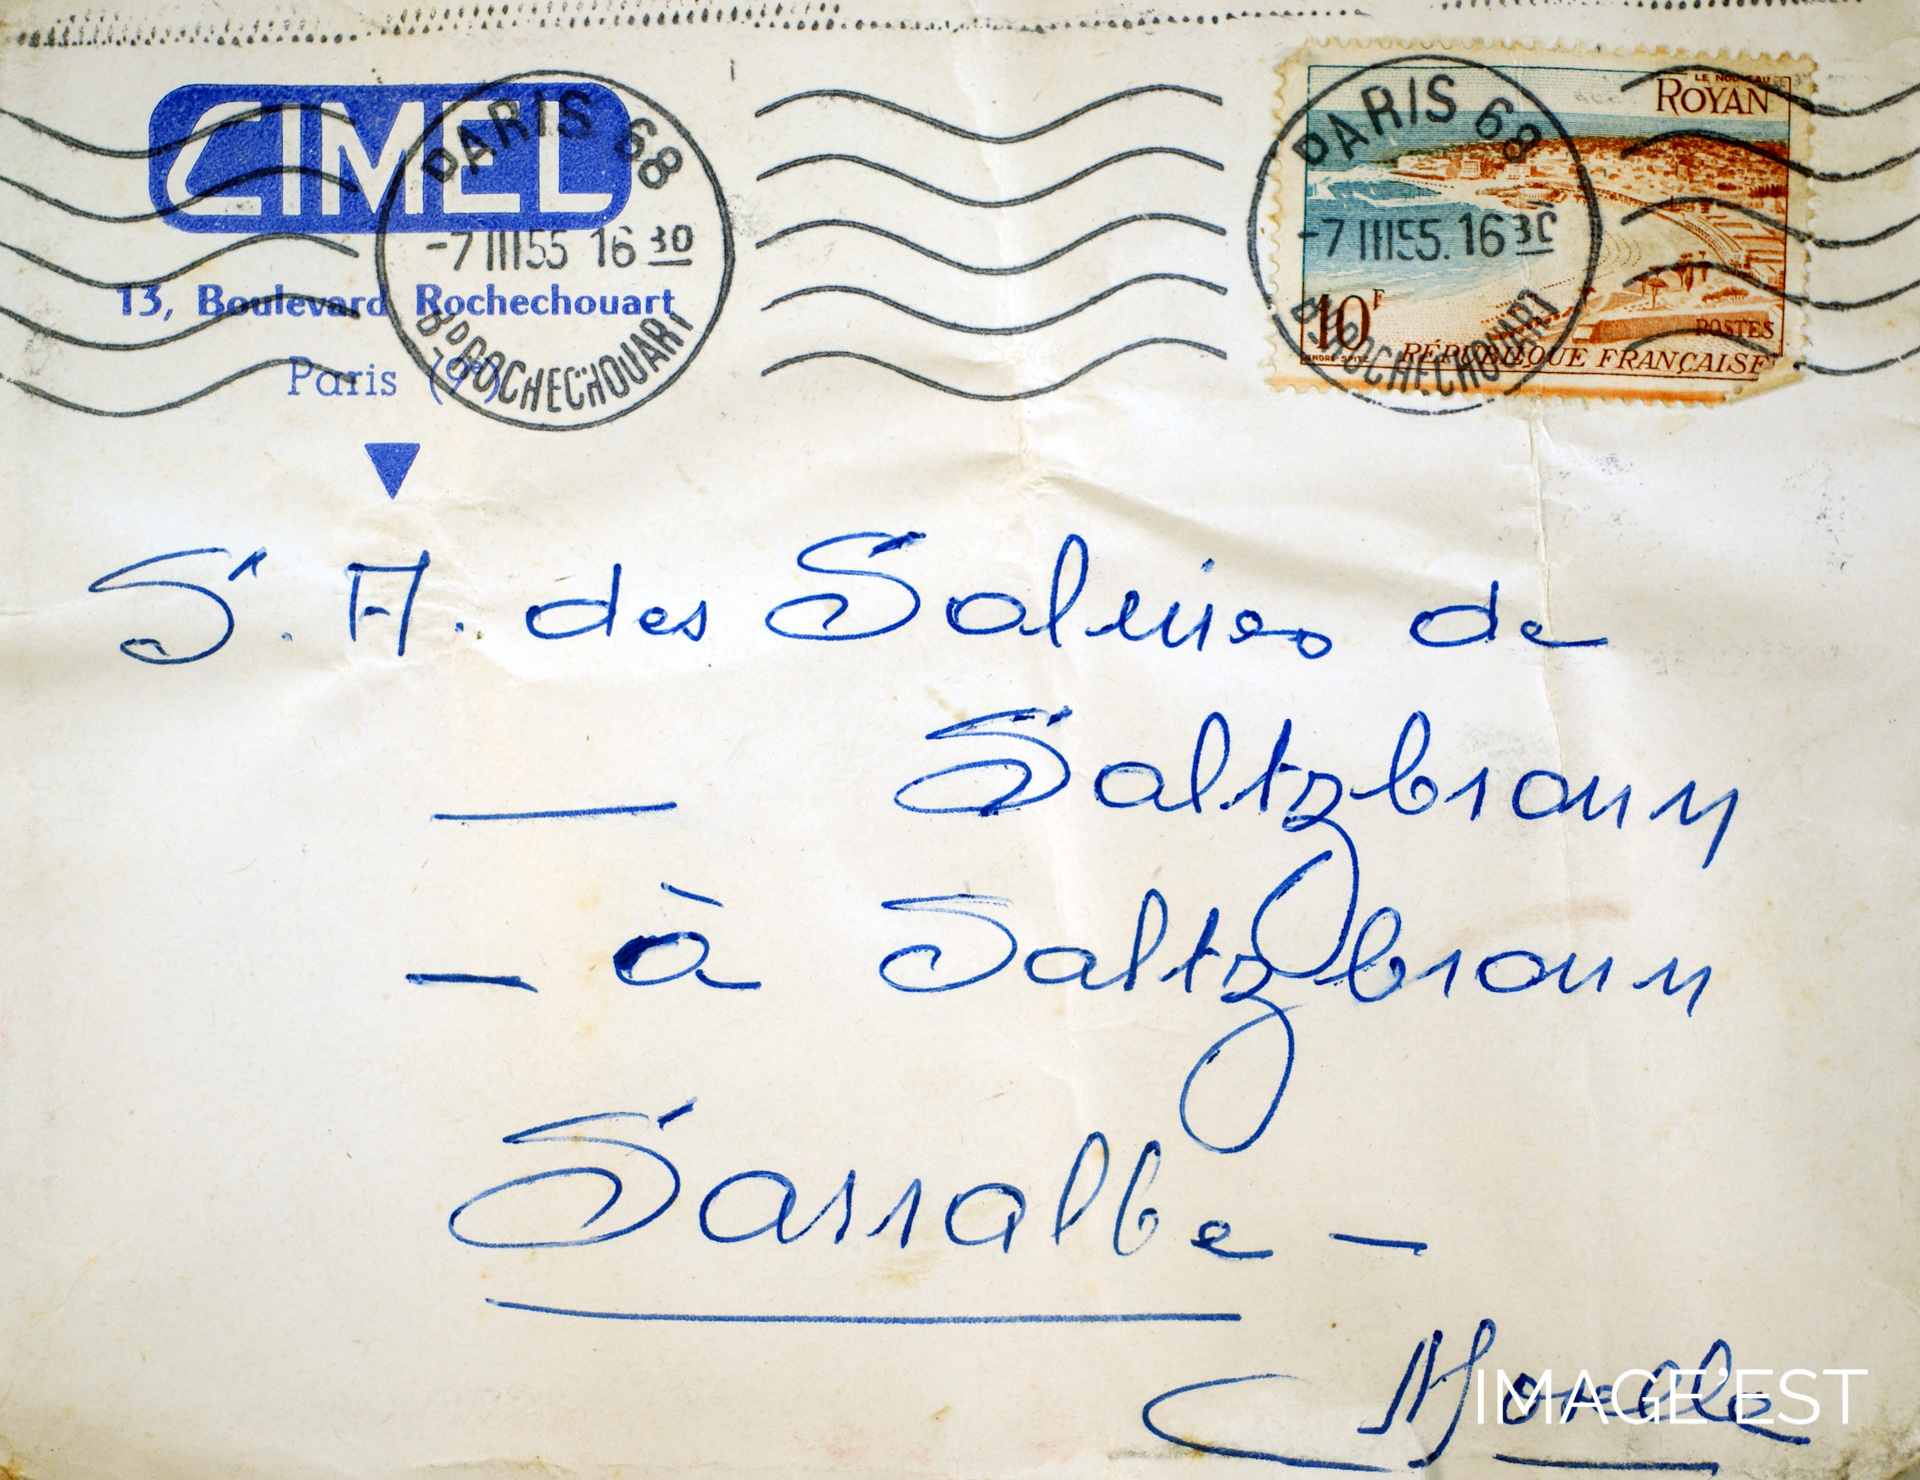 CIMEL
13, Boulevard Rochechouart
Paris (9e)
PARIS 68
-7 III 55 16 30
Bd ROCHECHOUART
PARIS 68
-7 III 55. 16 30
Bd ROCHECHOUART
LE NOUVEAU
ROYAN
10F
POSTES
RÉPUBLIQUE FRANÇAISE
S. A. des Salines de
Saltzbronn
— à Saltzbronn
Sarralbe —
Moselle
IMAGE'EST